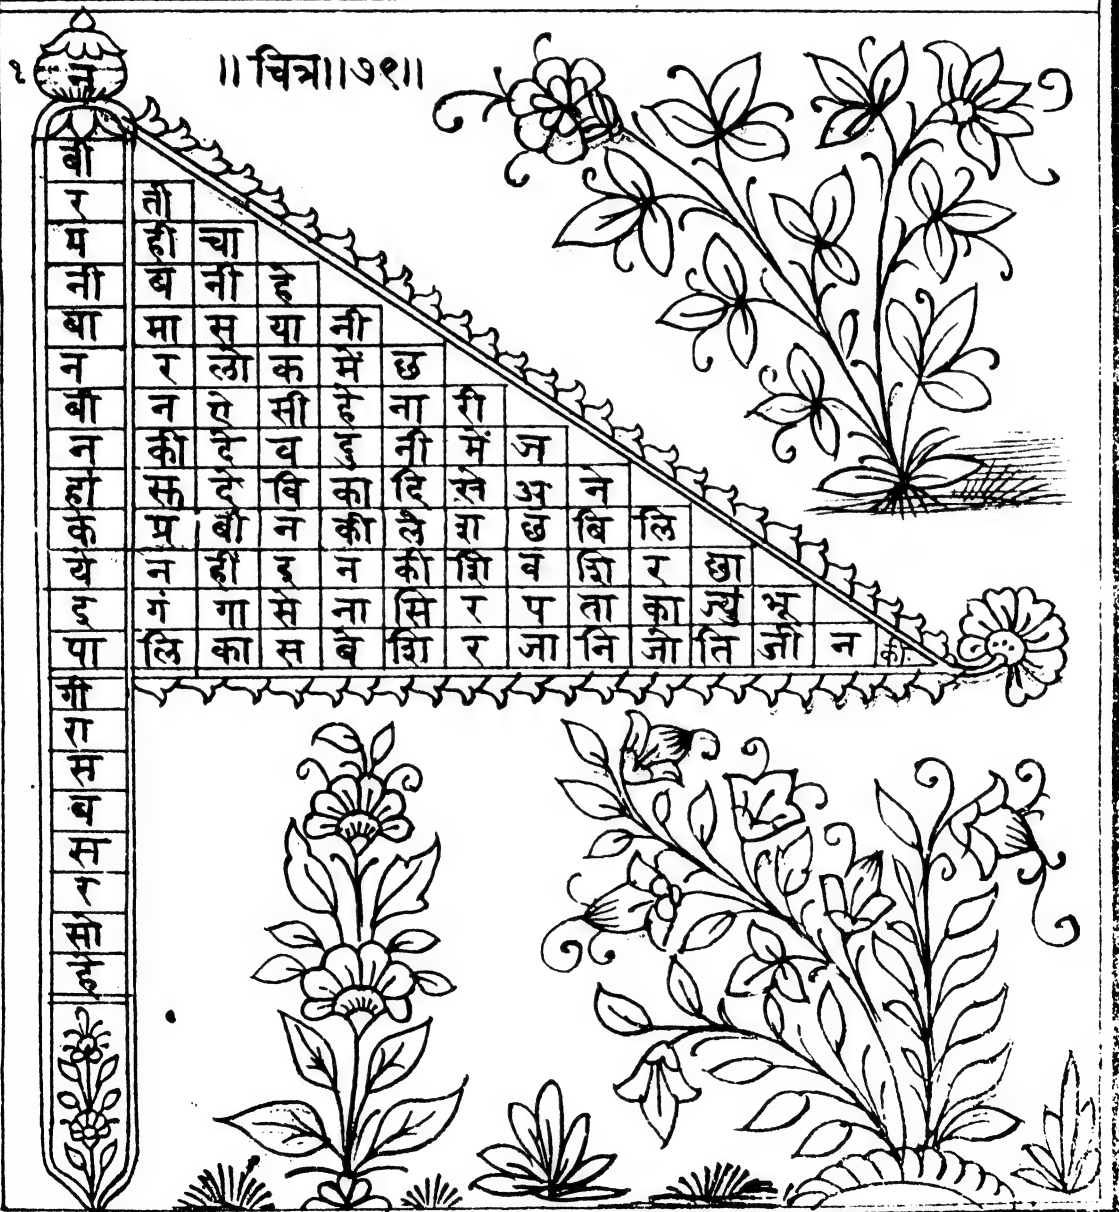 १ न ॥ चित्र॥७९॥
बी
र ती
म ही चा
नी ब नी हे
बा मा स या नी
न र लो क में छ
बी न ऐ सी हे ना री
न की दे व दु नी में ज
हो स्त दे बि का दि खे अ ने
के प्र बी न की ले श छ बि लि
ये न हीं इ न की शि व शि र छा
इ गं गा से ना सि र प ता का ज्यु भू
पा लि का स बे शि र जा नि जो ति जी न की
गी
रा
स
ब
स
र
सो
हे